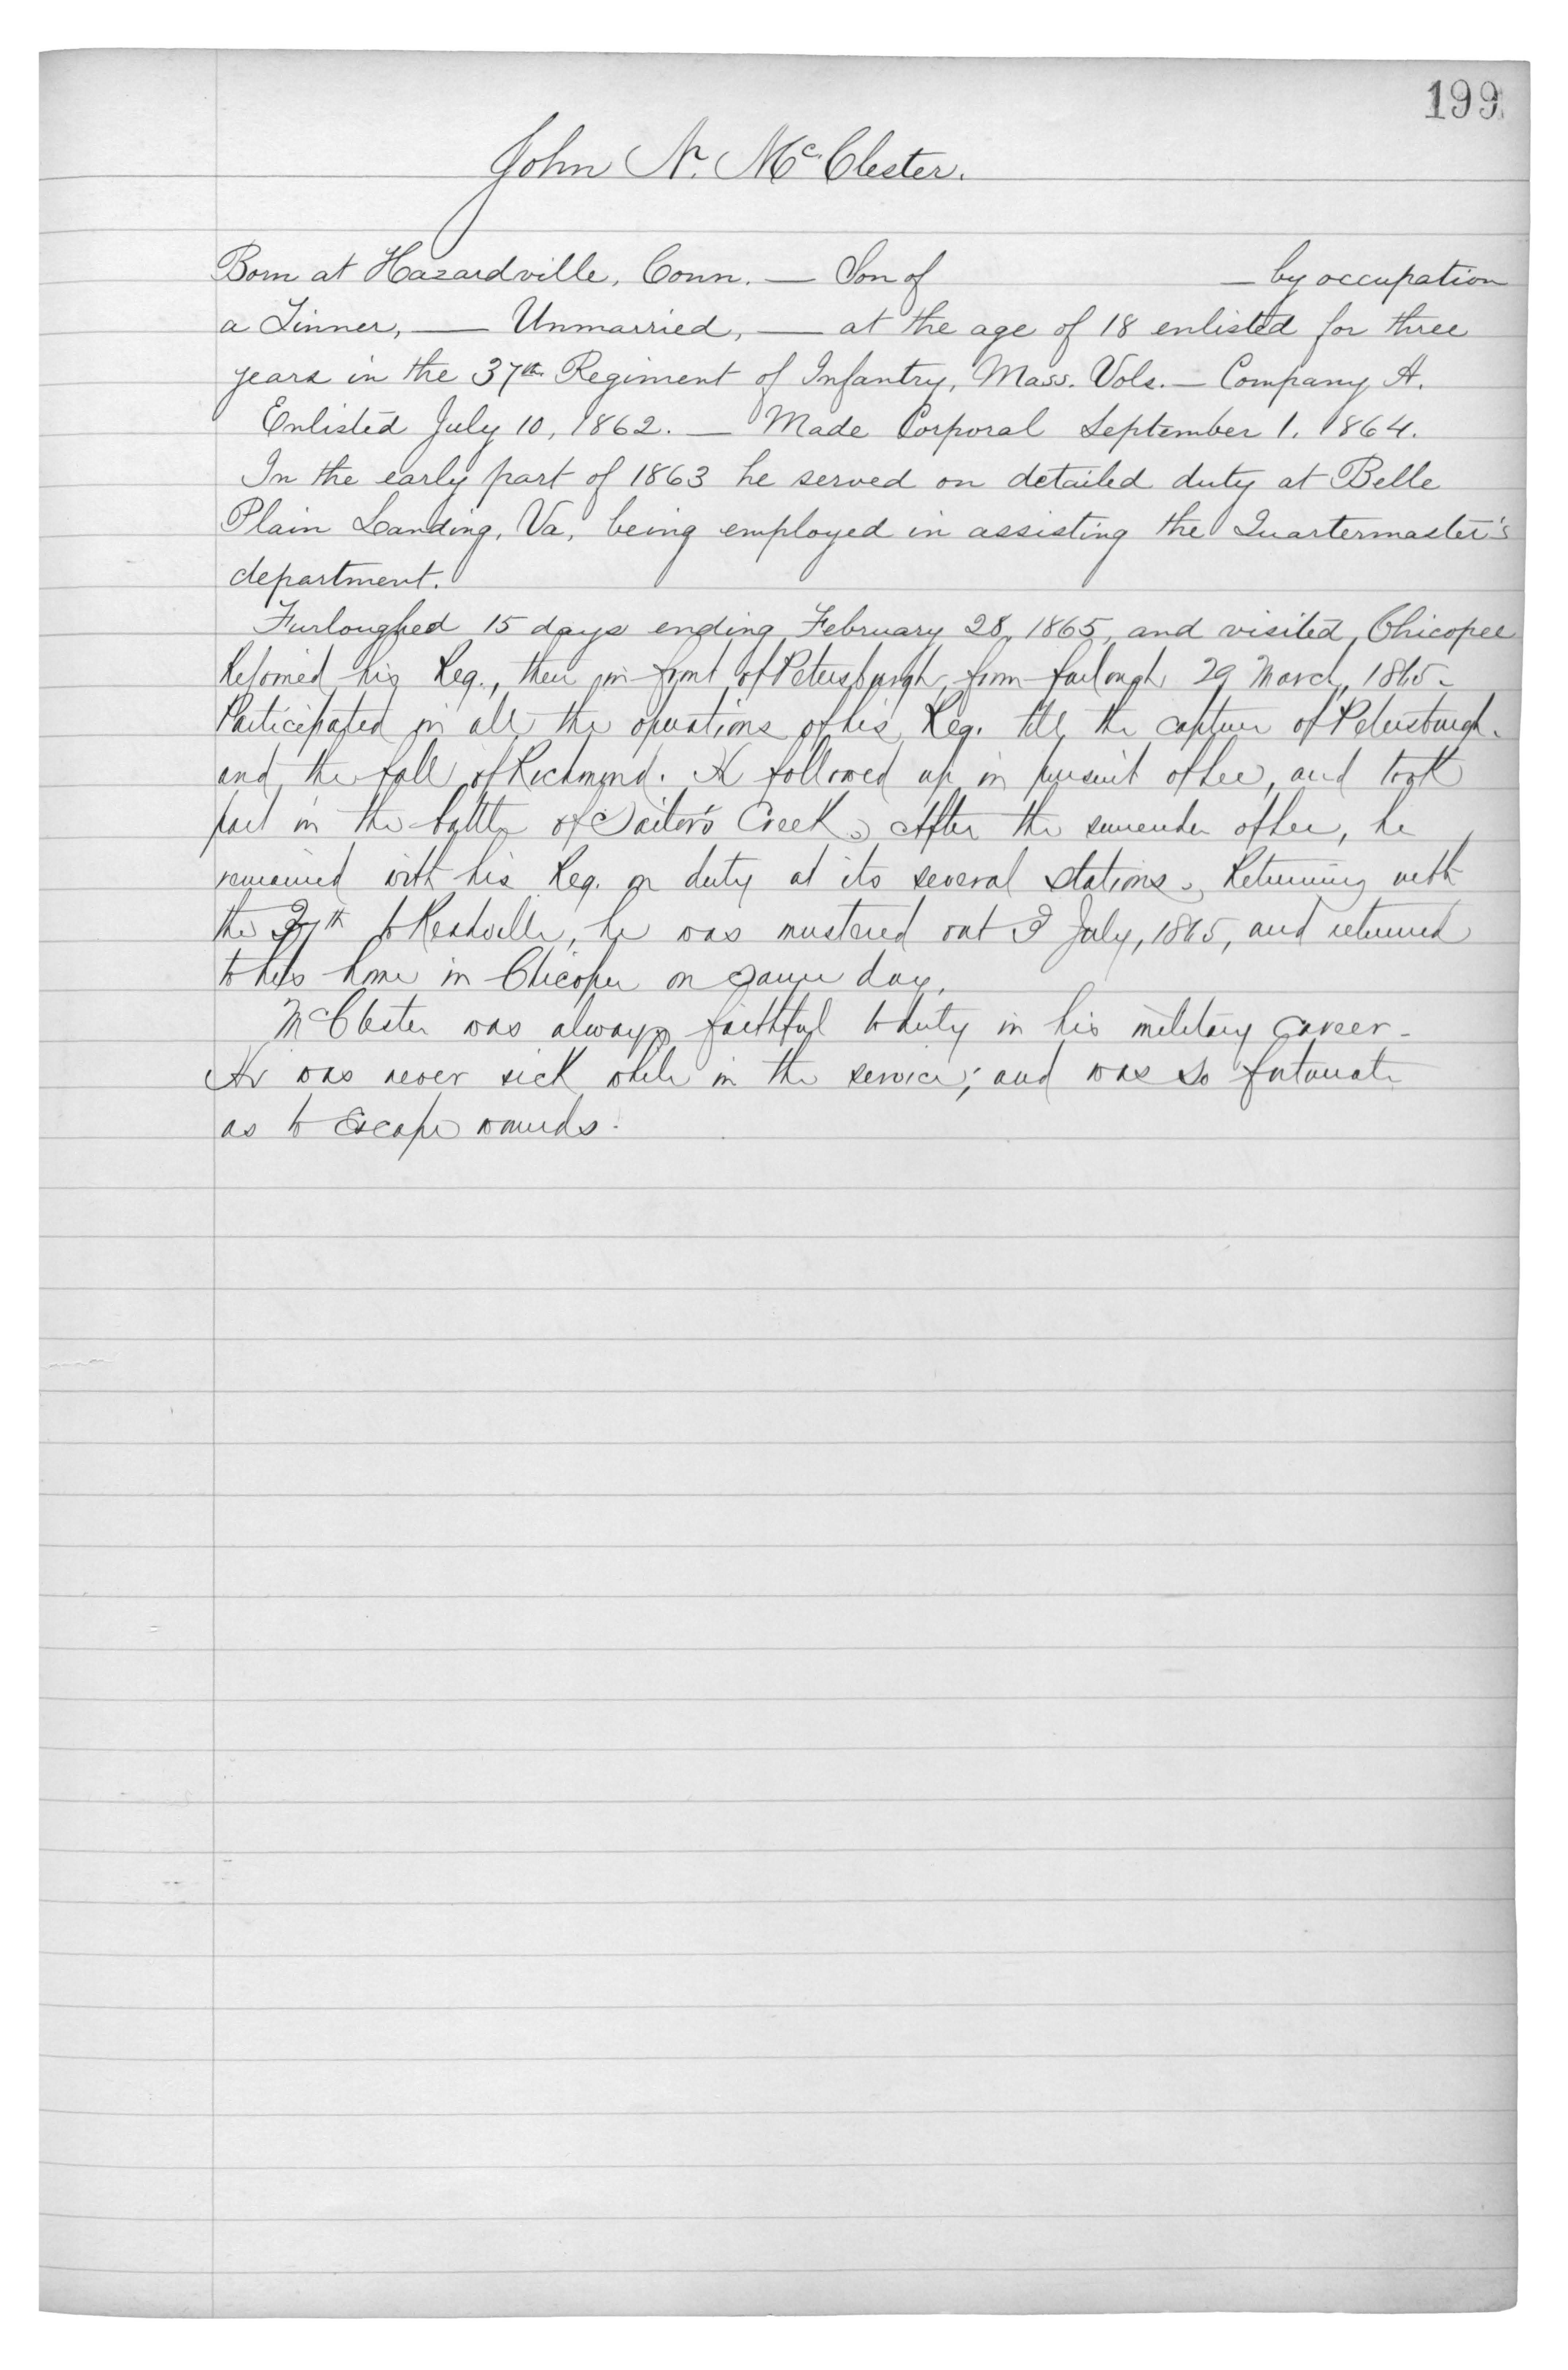 199
John N. McClester.
Born at Hazardville, Conn. — Son of — by occupation
a Tinner, — Unmarried, — at the age of 18 enlisted for three
years in the 37th Regiment of Infantry, Mass. Vols. — Company A.
Enlisted July 10, 1862. — Made Corporal September 1. 1864.
In the early part of 1863 he served on detailed duty at Belle
Plain Landing, Va, being employed in assisting the Quartermaster's
department.
Furloughed 15 days ending February 28, 1865, and visited Chicopee
Rejoined his Reg., then in front of Petersburgh, from furlough 29 March, 1865-
Participated in all the operations of his Reg. till the capture of Petersburgh.
and the fall of Richmond. He followed up in pursuit of Lee, and took
part in the battle of Sailor's Creek. After the surrender of Lee, he
remained with his Reg. on duty at its several stations. Returning with
the 37th to Readville, he was mustered out 2 July, 1865, and returned
to his home in Chicopee on same day.
McClester was always faithful to duty in his military career-
He was never sick while in the service; and was so fortunate
as to escape wounds.